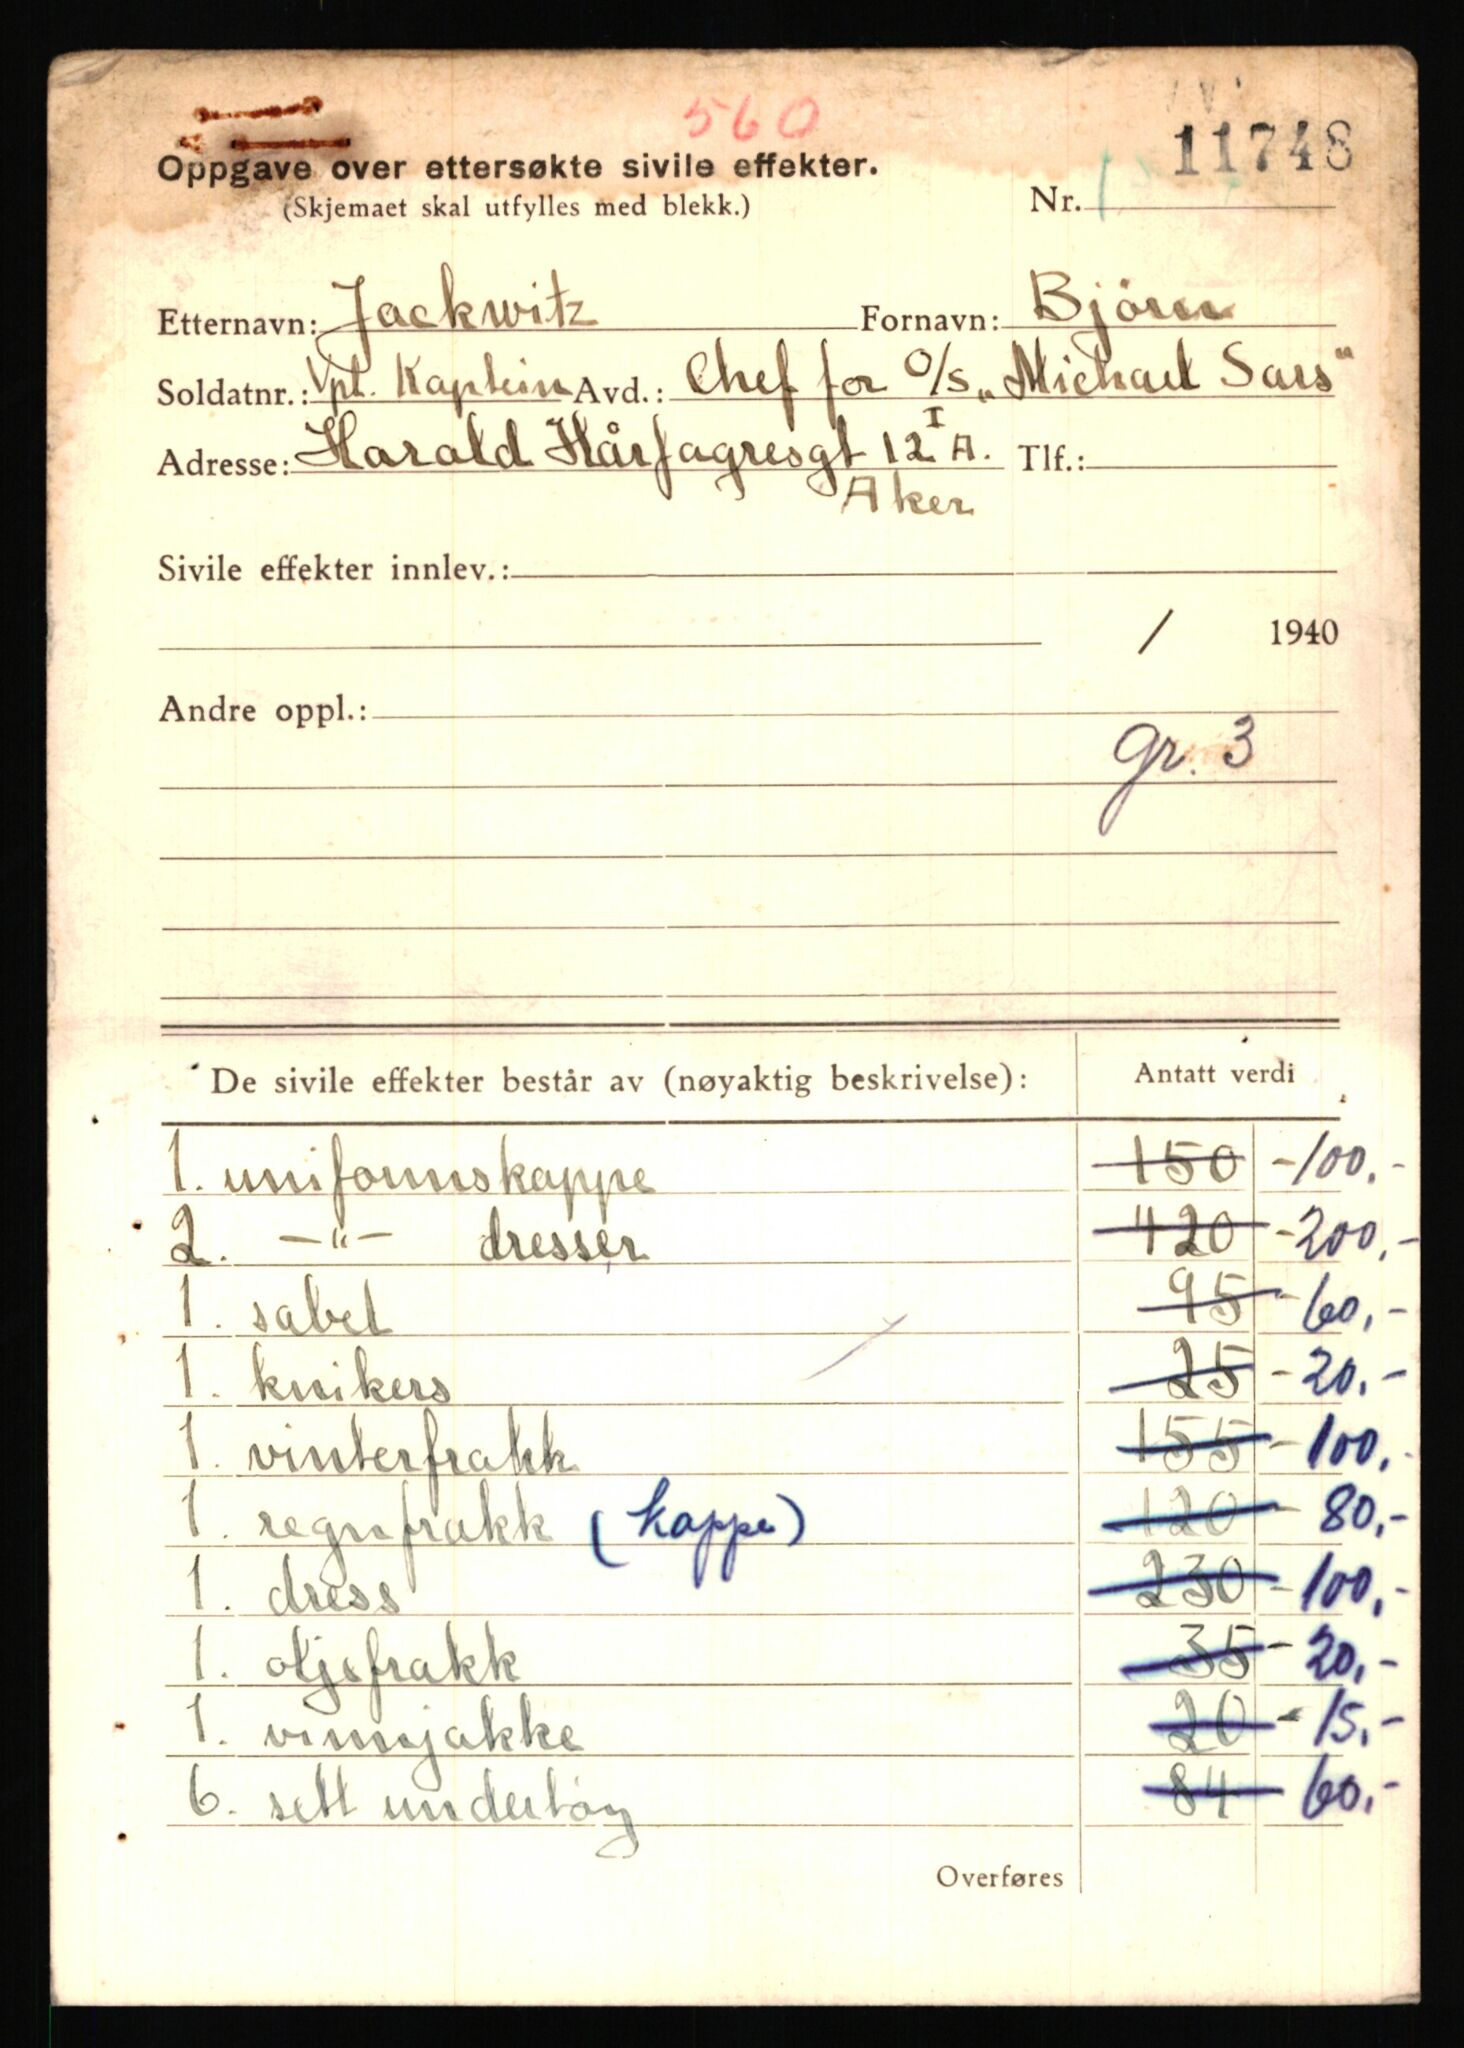 560
11748
Oppgave over ettersøkte sivile effekter.
(Skjemaet skal utfylles med blekk.)
Nr.
Etternavn: Jackwitz Fornavn: Björn
Soldatnr.: Vpl. Kaptein Avd.: Chef for O/S „Michael Sars"
Adresse: Harald Hårfagresgt 12 I A. Tlf.:
Aker
Sivile effekter innlev.:
/ 1940
Andre oppl.:
gr. 3
De sivile effekter består av (nøyaktig beskrivelse): Antatt verdi
1. uniformskappe 150 - 100,-
2. -"- dresser 420 - 200,-
1. sabel 95 - 60,-
1. knikers 25 - 20,-
1. vinterfrakk 155 - 100,-
1. regnfrakk (kappe) 120 - 80,-
1. dress 230 - 100,-
1. oljefrakk 35 - 20,-
1. vinnjakke 20 - 15,-
6. sett undertøy 84 60,-
Overføres